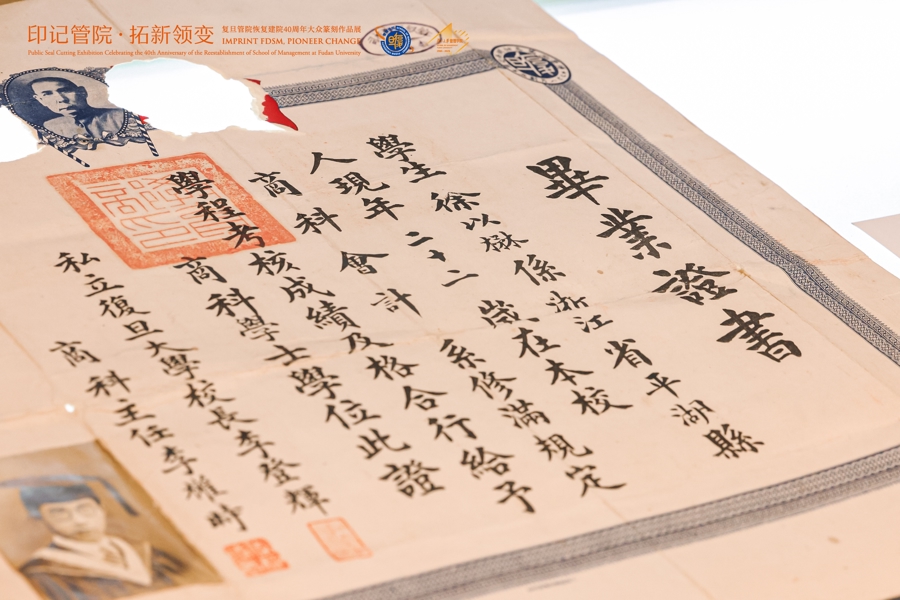 印记管院 · 拓新领变
复旦管院恢复建院40周年大众篆刻作品展
IMPRINT FDSM, PIONEER CHANGE
Public Seal Carving Exhibition Celebrating the 40th Anniversary of the Reestablishment of School of Management at Fudan University
畢業證書
學生徐以楙係浙江省平湖縣
人現年二十二歲在本校
商科會計系修滿規定
學程考核成績及格合行給予
商科學士學位此證
私立復旦大學校長李登輝
商科主任李權時